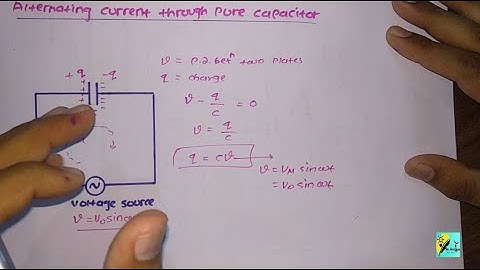 Alternating current through Pure capacitor
v = P.d. betⁿ two plates
+q -q
q = charge
v - q/c = 0
v = q/c
q = cv
v = vM sinωt
= v0 sinωt
voltage source
v = v0 sin